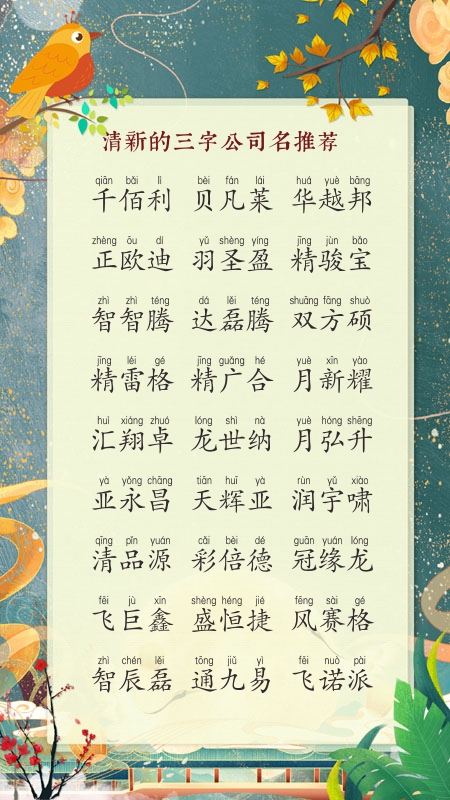 清新的三字公司名推荐
qiān bǎi lì bèi fán lái huá yuè bāng
千佰利 贝凡莱 华越邦
zhèng ōu dí yǔ shèng yíng jīng jùn bǎo
正欧迪 羽圣盈 精骏宝
zhì zhì téng dá lěi téng shuāng fāng shuò
智智腾 达磊腾 双方硕
jīng léi gé jīng guǎng hé yuè xīn yào
精雷格 精广合 月新耀
huì xiáng zhuó lóng shì nà yuè hóng shēng
汇翔卓 龙世纳 月弘升
yà yǒng chāng tiān huī yà rùn yǔ xiào
亚永昌 天辉亚 润宇啸
qīng pǐn yuán cǎi bèi dé guān yuán lóng
清品源 彩倍德 冠缘龙
fēi jù xīn shèng héng jié fēng sài gé
飞巨鑫 盛恒捷 风赛格
zhì chén lěi tōng jiǔ yì fēi nuò pài
智辰磊 通九易 飞诺派